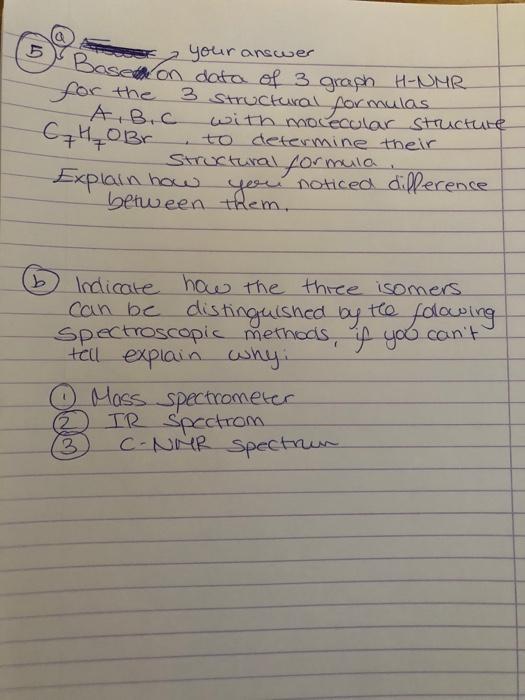 a
5 your answer
Based on data of 3 graph H-NMR
for the 3 structural formulas
A, B, C with molecular structure
C7H7OBr, to determine their
structural formula.
Explain how you noticed difference
between them.
b Indicate how the three isomers
can be distinguished by the folowing
spectroscopic methods, if you can't
tell explain why:
1 Mass spectrometer
2 IR spectrom
3 C-NMR spectrum